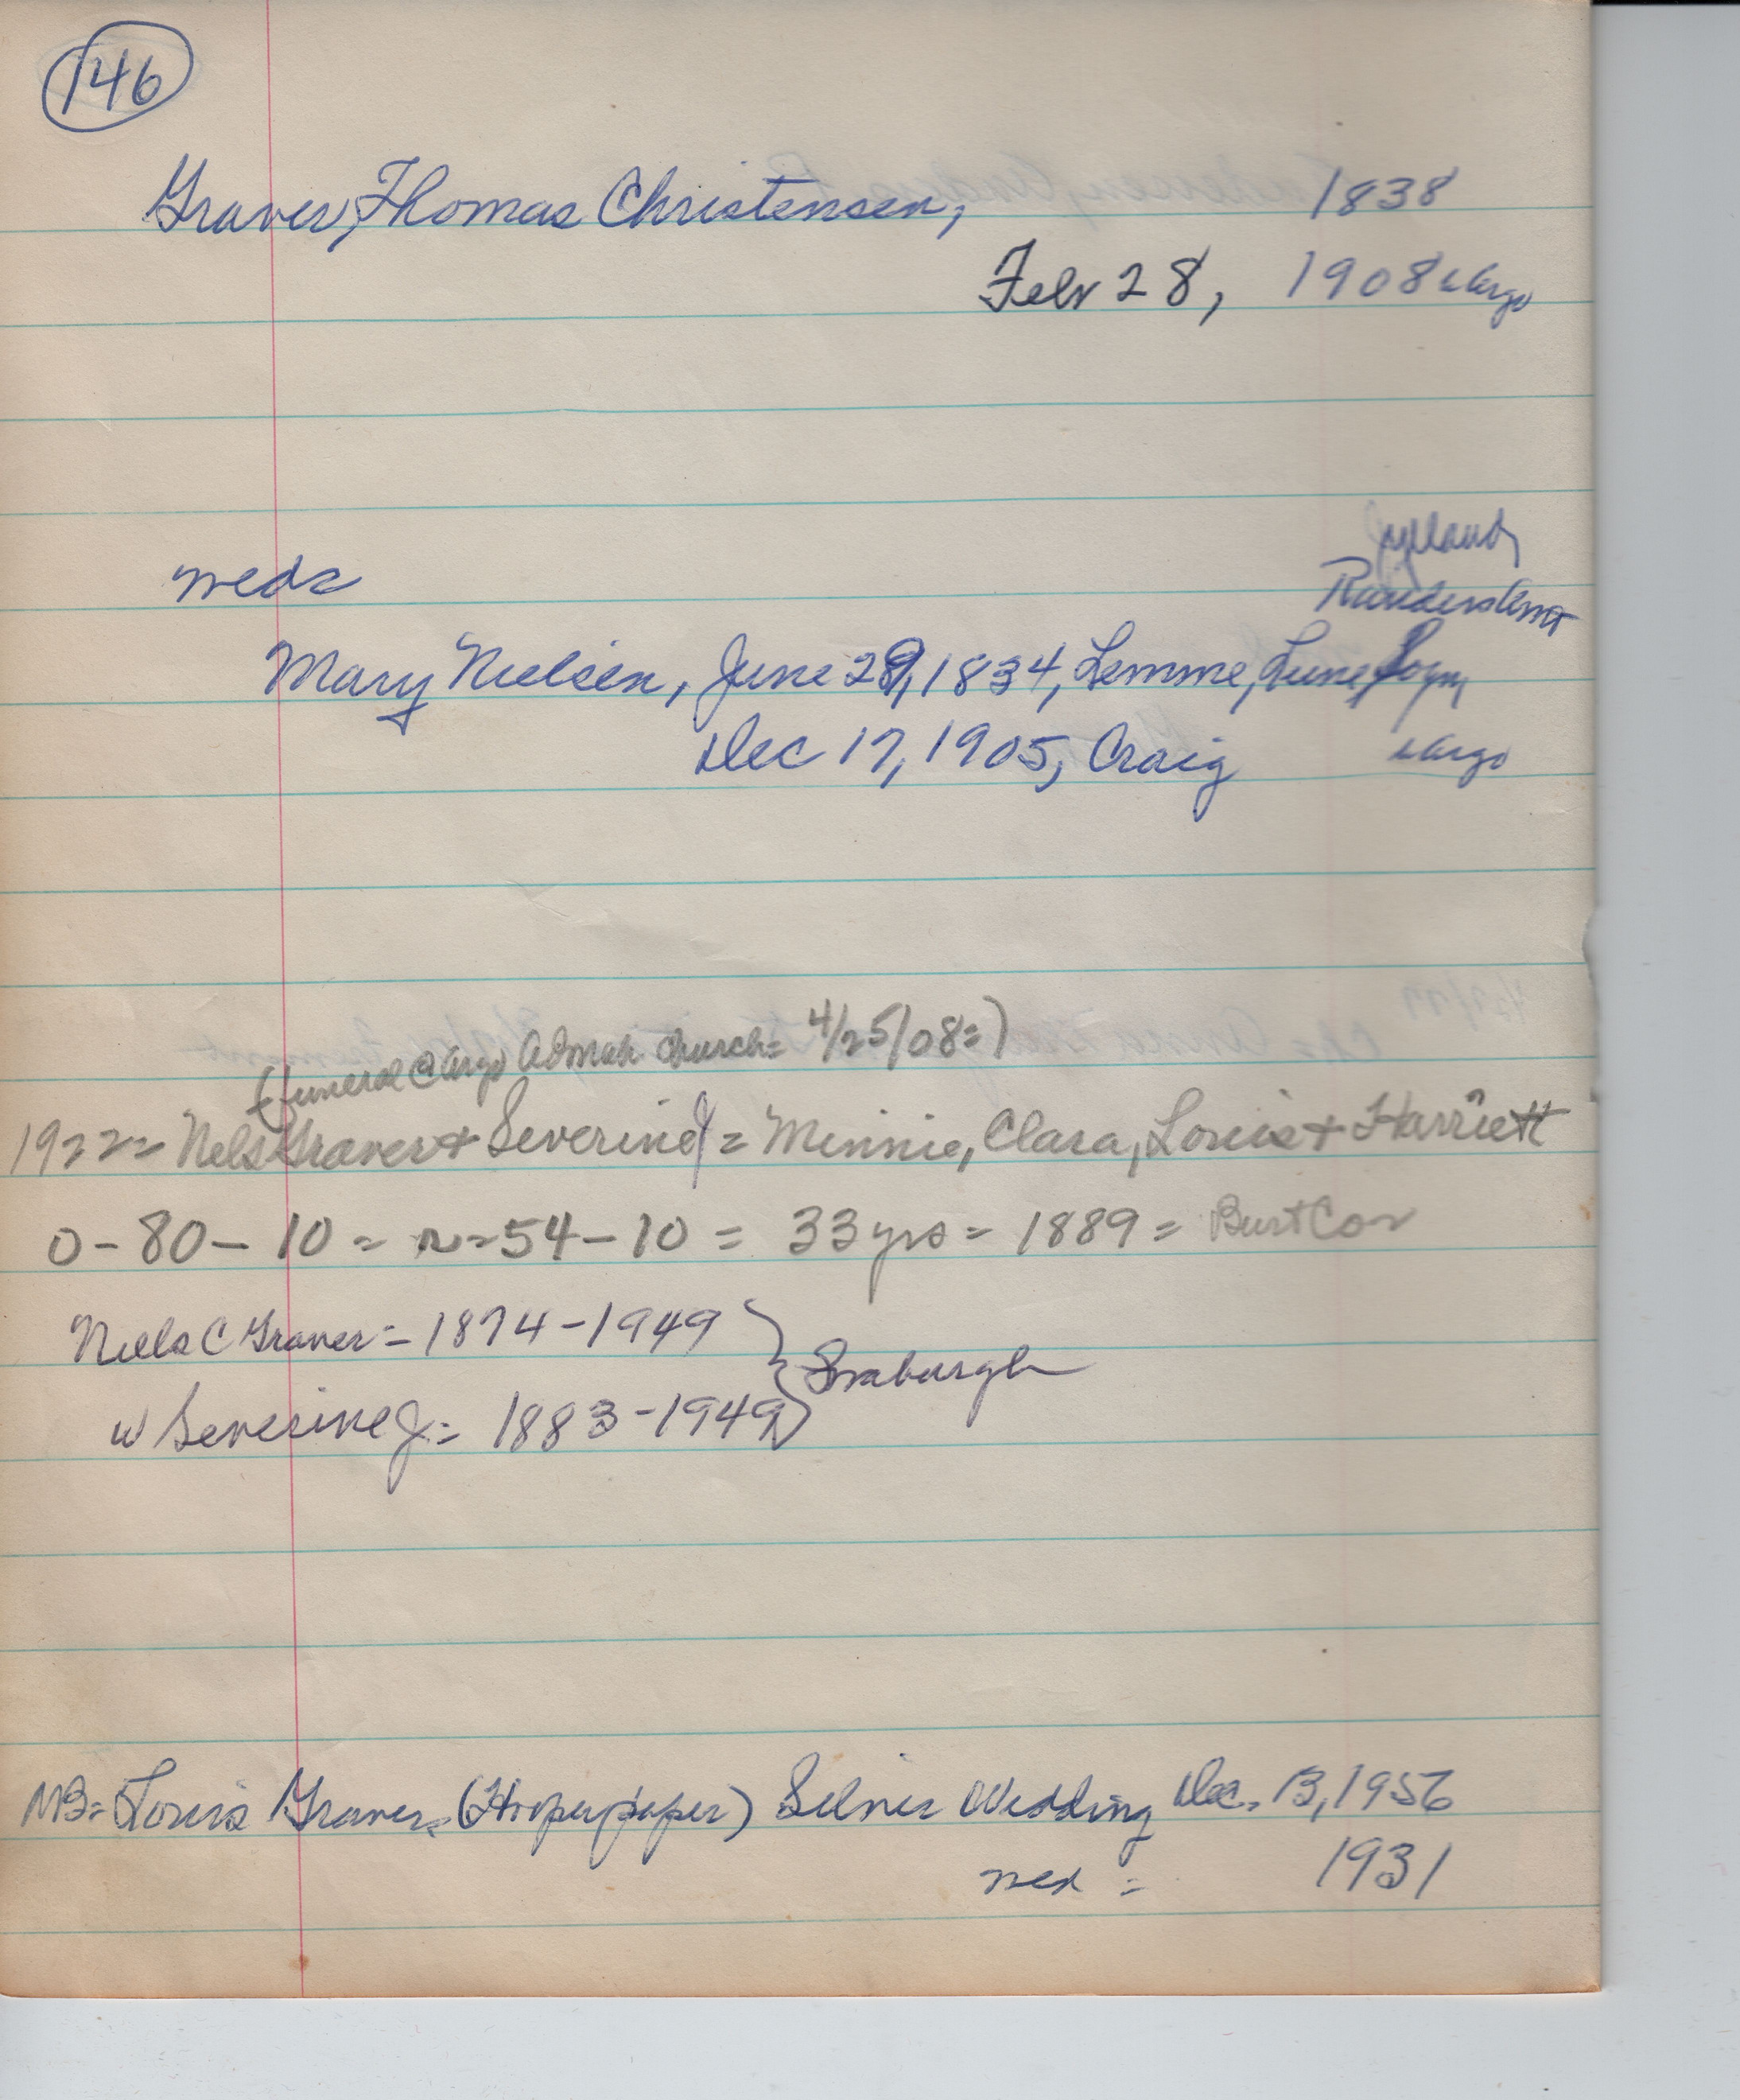 146
Graver, Thomas Christensen, 1838
Feb 28, 1908 Argo
Jylland,
Randers Amt
weds
Mary Nielsen, June 29, 1834, Lemme, Lime Sogn,
Dec 17, 1905, Craig Argo
(funeral @ Argo Admah Church= 4/25/08=)
1922= Nels Graver + Severine J= Minnie, Clara, Louis + Harriett
0-80-10= r=54-10= 33 yrs= 1889= Burt Co
Niels C Graver= 1874-1949
w Severine J.= 1883-1949
NB= Louis Graver, (Hooper paper) Silver Wedding Dec. 13, 1956
wed = 1931